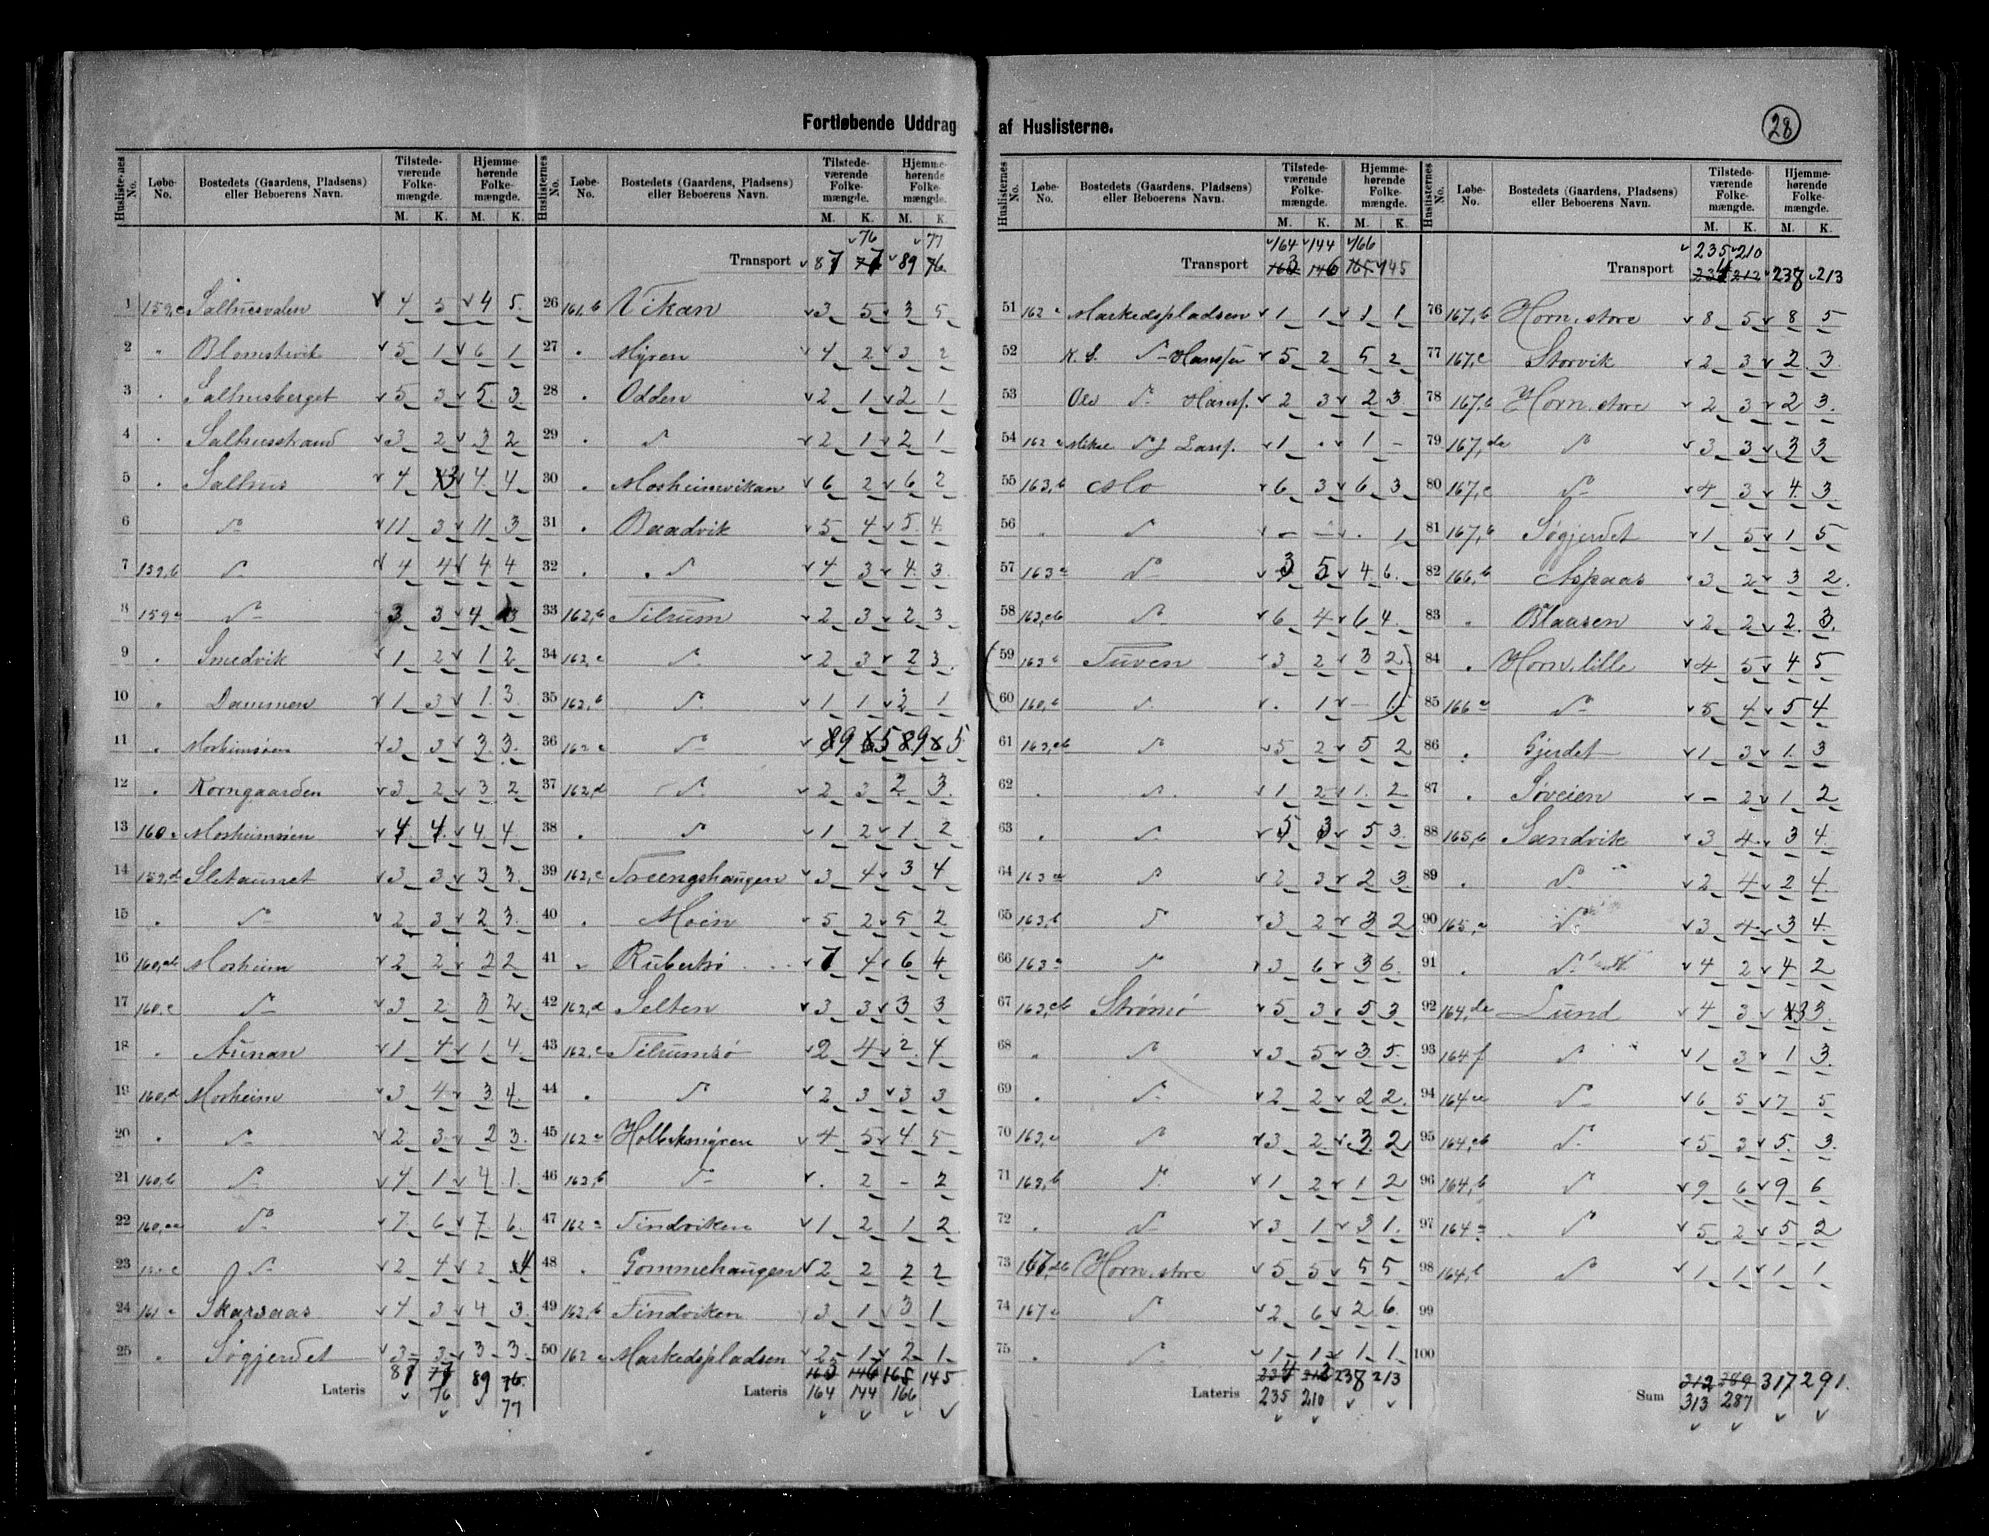 Fortløbende Uddrag af Huslisterne.
28
Huslisternes No. Løbe-No. Bostedets (Gaardens, Pladsens) eller Beboerens Navn. Tilstedeværende Folkemængde. M. K. Hjemmehørende Folkemængde. M. K.
1 159,c Salhusvalen 4 3 4 5
2 " Blomstervik 5 1 6 1
3 " Salhusberget 5 3 5 3
4 " Salhusstrand 3 2 3 2
5 " Salhus 4 3 4 4
6 do 11 3 11 3
7 159,b do 4 4 4 4
8 159a do 3 3 4 3
9 " Smedvik 1 2 1 2
10 " Dammen 1 3 1 3
11 " Mosheimsøen 3 3 3 3
12 " Korngaarden 3 2 3 2
13 160 Mosheimsøen 4 4 4 4
14 159,d Sletaunet 3 3 3 3
15 " do 2 3 2 3
16 Mosheim 2 2 2 2
17 160,c do 3 2 3 2
18 " Aunan 1 4 1 4
19 160,d Mosheim 3 4 3 4
20 " do 2 3 2 3
21 160,b do 4 1 4 1
22 do 7 6 7 6
23 do 2 4 2 4
24 161 Skarsaas 4 3 4 3
25 Søgjerdet 3 3 3 3
Lateris 87 77 89 76
76 77
76 77
Transport 87 77 89 76
26 161,b Vikan 3 5 3 5
27 " Myren 4 2 3 2
28 " Odden 2 1 2 1
29 " do 2 1 2 1
30 " Mosheimvikan 6 2 6 2
31 " Baadvik 5 4 5 4
32 " do 4 3 4 3
33 162,b Tilrum 2 3 2 3
34 162,c do 2 3 2 3
35 162,b do 1 1 2 1
36 162 do 9 5 9 5
37 162,d do 2 3 2 3
38 " do 1 2 1 2
39 162,c Treengshaugen 3 4 3 4
40 " Moen 5 2 5 2
41 " Rubertsø 7 4 6 4
42 162,d Selten 3 3 3 3
43 162,c Tilrumsø 2 4 2 4
44 " do 2 3 3 3
45 162 Holtermyren 4 5 4 5
46 162,b do . 2 - 2
47 162 Tindviken 1 2 1 2
48 " Gommehaugen 2 2 2 2
49 162,b Tindviken 3 1 3 1
50 162 Markedspladsen 2 1 2 1
Lateris 163 146 165 145
164 144 166
164 144 166
Transport 163 146 165 145
51 162 Markedspladsen 1 1 1 1
52 K. S. do Hansen 5 2 5 2
53 Ole do Hansf. 2 3 2 3
54 162 do J. Larsf. 1 . 1 -
55 163,b Mo 6 3 6 3
56 " do - - . 1
57 163a do 3 5 4 6
58 do 6 4 6 4
59 163 Tuven 3 2 3 2
60 160,b do . 1 - 1
61 do 5 2 5 2
62 " do 1 2 1 2
63 " do 5 3 5 3
64 163 do 2 3 2 3
65 163,b do 3 2 3 2
66 163a do 3 6 3 6
67 Strømsø 5 3 5 3
68 " do 3 5 3 5
69 " do 2 2 2 2
70 163,a do 3 2 3 2
71 163,b do 1 2 1 2
72 " do 3 1 3 1
73 Horn, store 5 5 5 5
74 167a do 2 6 2 6
75 " do 1 1 1 1
Lateris 234 212 238 213
235 210
235 210
Transport 234 212 238 213
76 167,b Horn, store 8 5 8 5
77 167,c Storvik 2 3 2 3
78 167,b Horn, store 2 3 2 3
79 167,da do 3 3 3 3
80 167,c do 4 3 4 3
81 167,b Søgjerdet 1 5 1 5
82 166,b Aspaas 3 2 3 2
83 " Blaasen 2 2 2 3
84 " Horn, lille 4 5 4 5
85 166a do 5 4 5 4
86 " Gjerdet 1 3 1 3
87 " Søveien - 2 1 2
88 165,b Sandvik 3 4 3 4
89 " do 2 4 2 4
90 165,a do 3 4 3 4
91 " do 4 2 4 2
92 164,de Lund 4 3 3 3
93 164f do 1 3 1 3
94 164 do 6 5 7 5
95 164,cb do 5 3 5 3
96 164,b do 9 6 9 6
97 164a do 5 2 5 2
98 164,b do 1 1 1 1
99
100
Sum 312 289 317 291
313 287